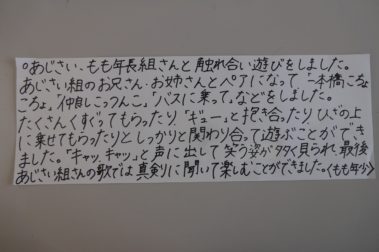 ○あじさい、もも年長組さんと触れ合い遊びをしました。
あじさい組のお兄さん・お姉さんとペアになって「一本橋こちょ
こちょ」「仲良しこっつんこ」「バスに乗って」などをしました。
たくさんくすぐってもらったり「ギュー」と抱き合ったりひざの上
に乗せてもらったりとしっかりと関わり合って遊ぶことができ
ました。「キャッ、キャッ」と声に出して笑う姿が多く見られ、最後
あじさい組さんの歌では真剣に聞いて楽しむことができました。〈もも年少〉